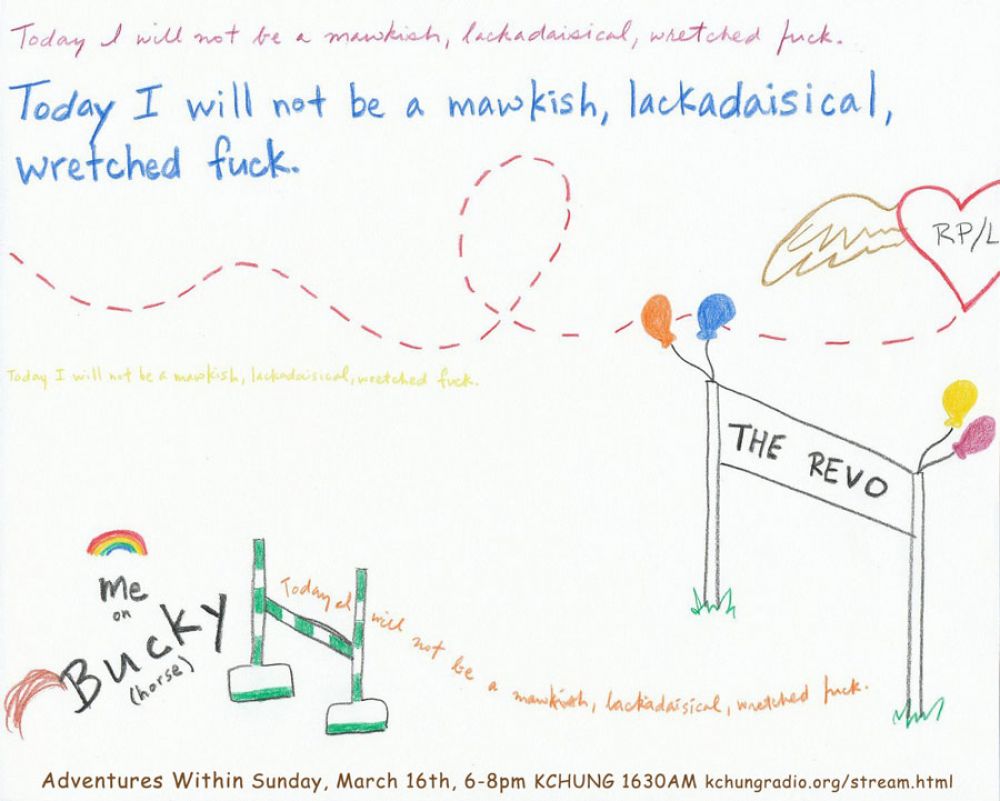 Today I will not be a mawkish, lackadaisical, wretched fuck.
Today I will not be a mawkish, lackadaisical,
wretched fuck.
RP/L
Today I will not be a mawkish, lackadaisical, wretched fuck.
THE REVO
me
on
Bucky
(horse)
Today I will not be a mawkish, lackadaisical, wretched fuck.
Adventures Within Sunday, March 16th, 6-8pm KCHUNG 1630AM kchungradio.org/stream.html